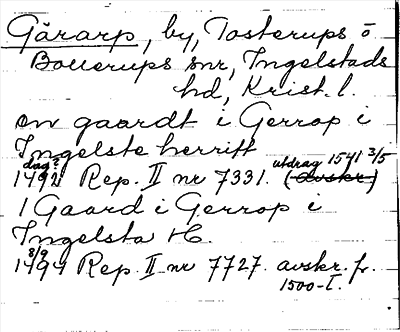 Gärarp, by, Tosterups o.
Bollerups snr, Ingelstads
hd, Krist. l.
en gaardt i Gerrop i
Ingelste herritt
dag? utdrag 1541 3/5
1492 Rep. II nr 7331. (avskr)
1 Gaard i Gerrop i
Ingelsta H.
8/9
1494 Rep. II nr 7727. avskr. fr.
1500-t.